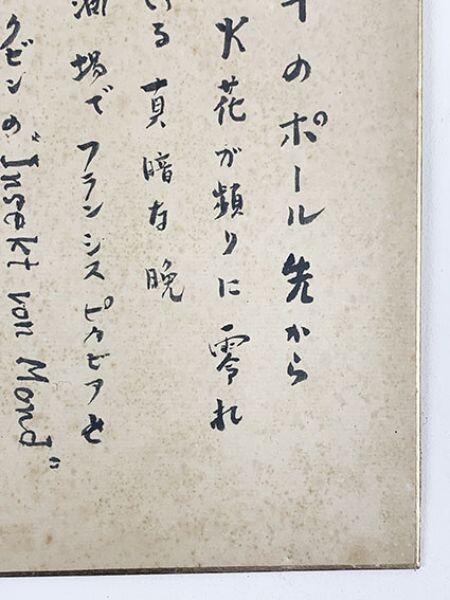 のポール先から
火花が頻りに零れ
いる真暗な晩
酒場でフランシスピカビアと
クゼンの"Insekt von Mond"